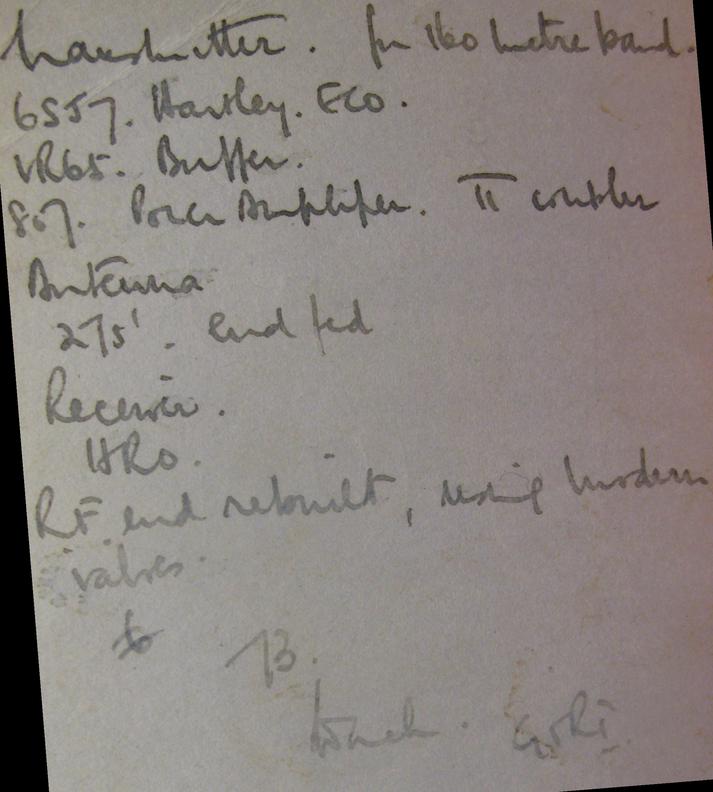 Transmitter. for 160 metre band.
6SJ7. Hartley. ECO.
VR65. Buffer.
807. Power Amplifier. π coupler
Antenna
275'. end fed
Receiver.
HRO.
RF. end rebuilt, using modern
valves.
73.